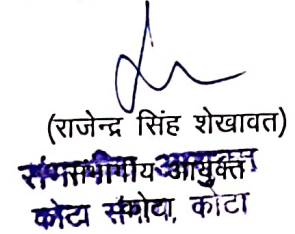 (राजेन्द्र सिंह शेखावत)
संभागीय आयुक्त
कोटा संकोटा, कोटा